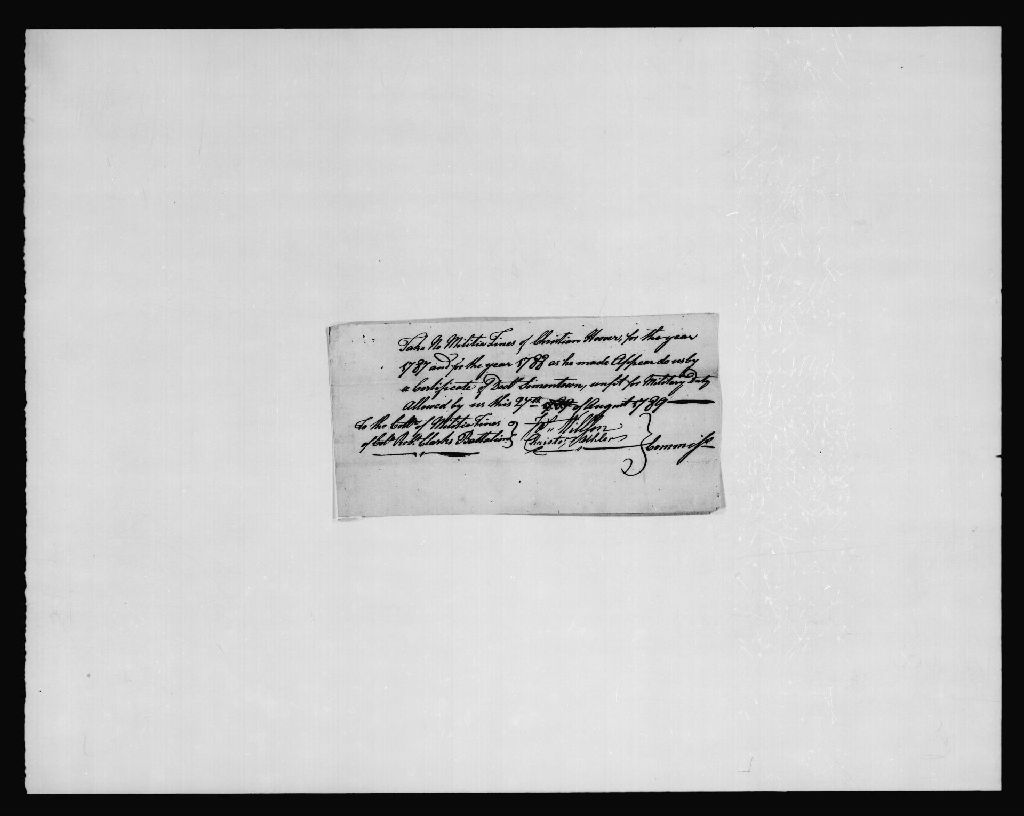 Take No Militia Fines of Christian Hoover, for the year
1787 and for the year 1788 as he made Appear to us by
a Certificate of Doctr. Simontown, unfit for Military duty
Allowed by us this 27th of August 1789
To the Collr. of Militia Fines
of Col. Robt. Clarks Battalion
Jas. Willson
Commiss